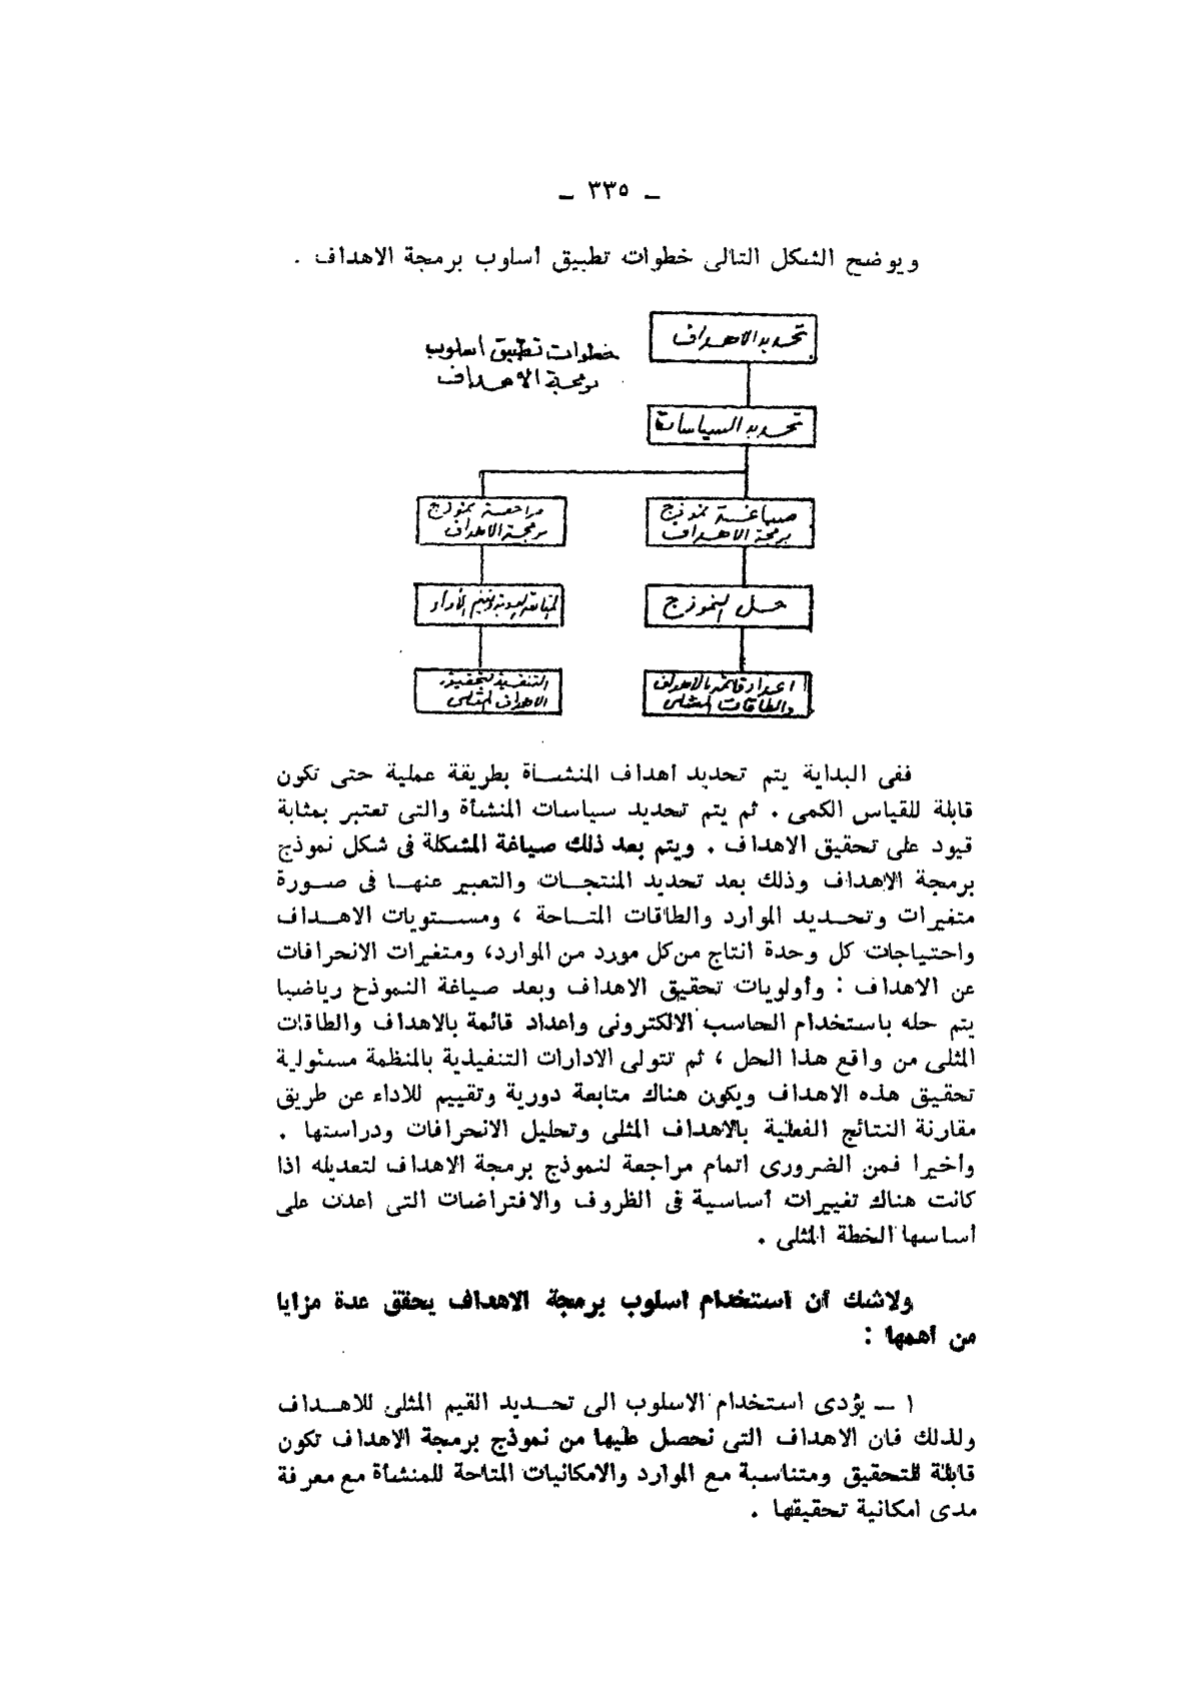 ـ ٣٣٥ ـ
ويوضح الشكل التالى خطوات تطبيق أسلوب برمجة الاهداف .
تحديد الاهداف
خطوات تطبيق أسلوب
برمجة الاهداف
تحديد السياسات
صياغة نموذج
برمجة الاهداف
مراجعة نموذج
برمجة الاهداف
حل النموذج
المتابعة الدورية وتقييم الأداء
اعداد قائمة بالاهداف
والطاقات المثلى
التنفيذ لتحقيق
الاهداف المثلى
ففى البداية يتم تحديد أهداف المنشأة بطريقة عملية حتى تكون
قابلة للقياس الكمى . ثم يتم تحديد سياسات المنشأة والتى تعتبر بمثابة
قيود على تحقيق الاهداف . ويتم بعد ذلك صياغة المشكلة فى شكل نموذج
برمجة الاهداف وذلك بعد تحديد المنتجات والتعبير عنها فى صورة
متغيرات وتحديد الموارد والطاقات المتاحة ، ومستويات الاهداف
واحتياجات كل وحدة انتاج من كل مورد من الموارد، ومتغيرات الانحرافات
عن الاهداف : وأولويات تحقيق الاهداف وبعد صياغة النموذج رياضيا
يتم حله باستخدام الحاسب الالكترونى واعداد قائمة بالاهداف والطاقات
المثلى من واقع هذا الحل ، ثم تتولى الادارات التنفيذية بالمنظمة مسئولية
تحقيق هذه الاهداف ويكون هناك متابعة دورية وتقييم للاداء عن طريق
مقارنة النتائج الفعلية بالاهداف المثلى وتحليل الانحرافات ودراستها .
وأخيرا فمن الضرورى اتمام مراجعة لنموذج برمجة الاهداف لتعديله اذا
كانت هناك تغييرات أساسية فى الظروف والافتراضات التى اعدت على
أساسها الخطة المثلى .
ولاشك أن استخدام اسلوب برمجة الاهداف يحقق عدة مزايا
من أهمها :
١ ــ يؤدى استخدام الاسلوب الى تحديد القيم المثلى للاهداف
ولذلك فان الاهداف التى نحصل عليها من نموذج برمجة الاهداف تكون
قابلة للتحقيق ومتناسبة مع الموارد والامكانيات المتاحة للمنشأة مع معرفة
مدى امكانية تحقيقها .